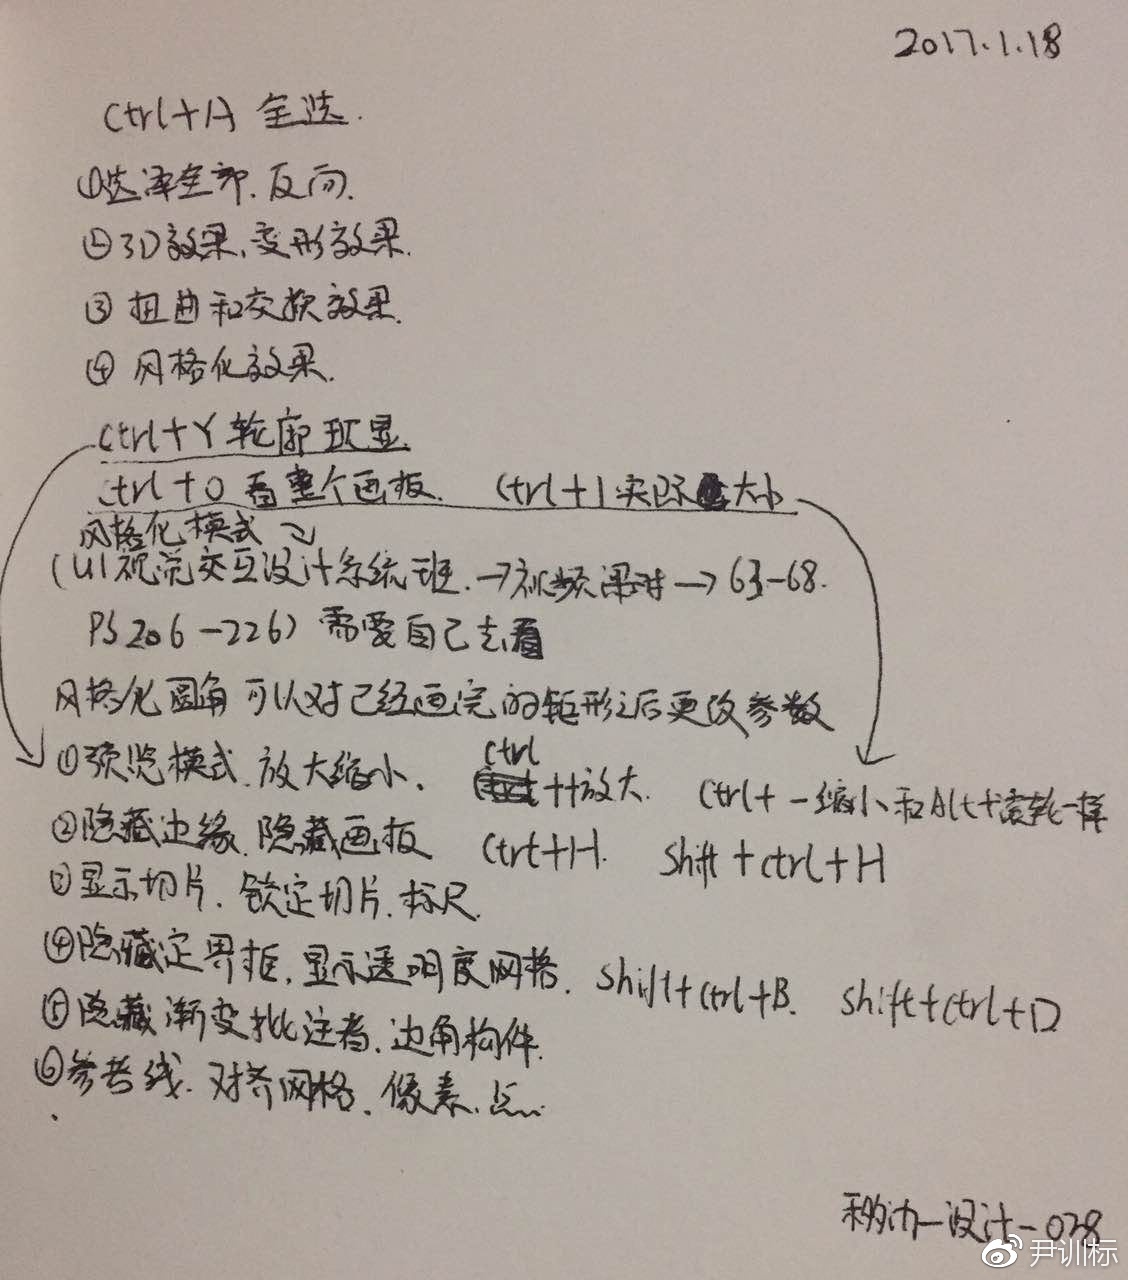 2017.1.18
Ctrl+A 全选.
①选泽全部.反向.
②3D效果、变形效果.
③ 扭曲和交换效果.
④ 风格化效果.
Ctrl+Y轮廓 显.
Ctrl+0看整个画板. Ctrl+1实际大小
风格化模式
(UI视觉交互设计系统班.→视频课时→63-68.
PS206-226) 需要自己去看
风格化圆角 可以对已经画完的矩形之后更改参数
①预览模式.放大缩小、 Ctrl ++放大. Ctrl+-缩小和Alt+滚轮一样
②隐藏边缘.隐藏画板 Ctrl+H. Shift+Ctrl+H
③显示切片.锁定切片.标尺.
④隐藏定界框.显示透明度网格. Shift+Ctrl+B. Shift+Ctrl+D
⑤隐藏渐变批注者.边角构件.
⑥参考线.对齐网格、像素.点..
设计-028
尹训标